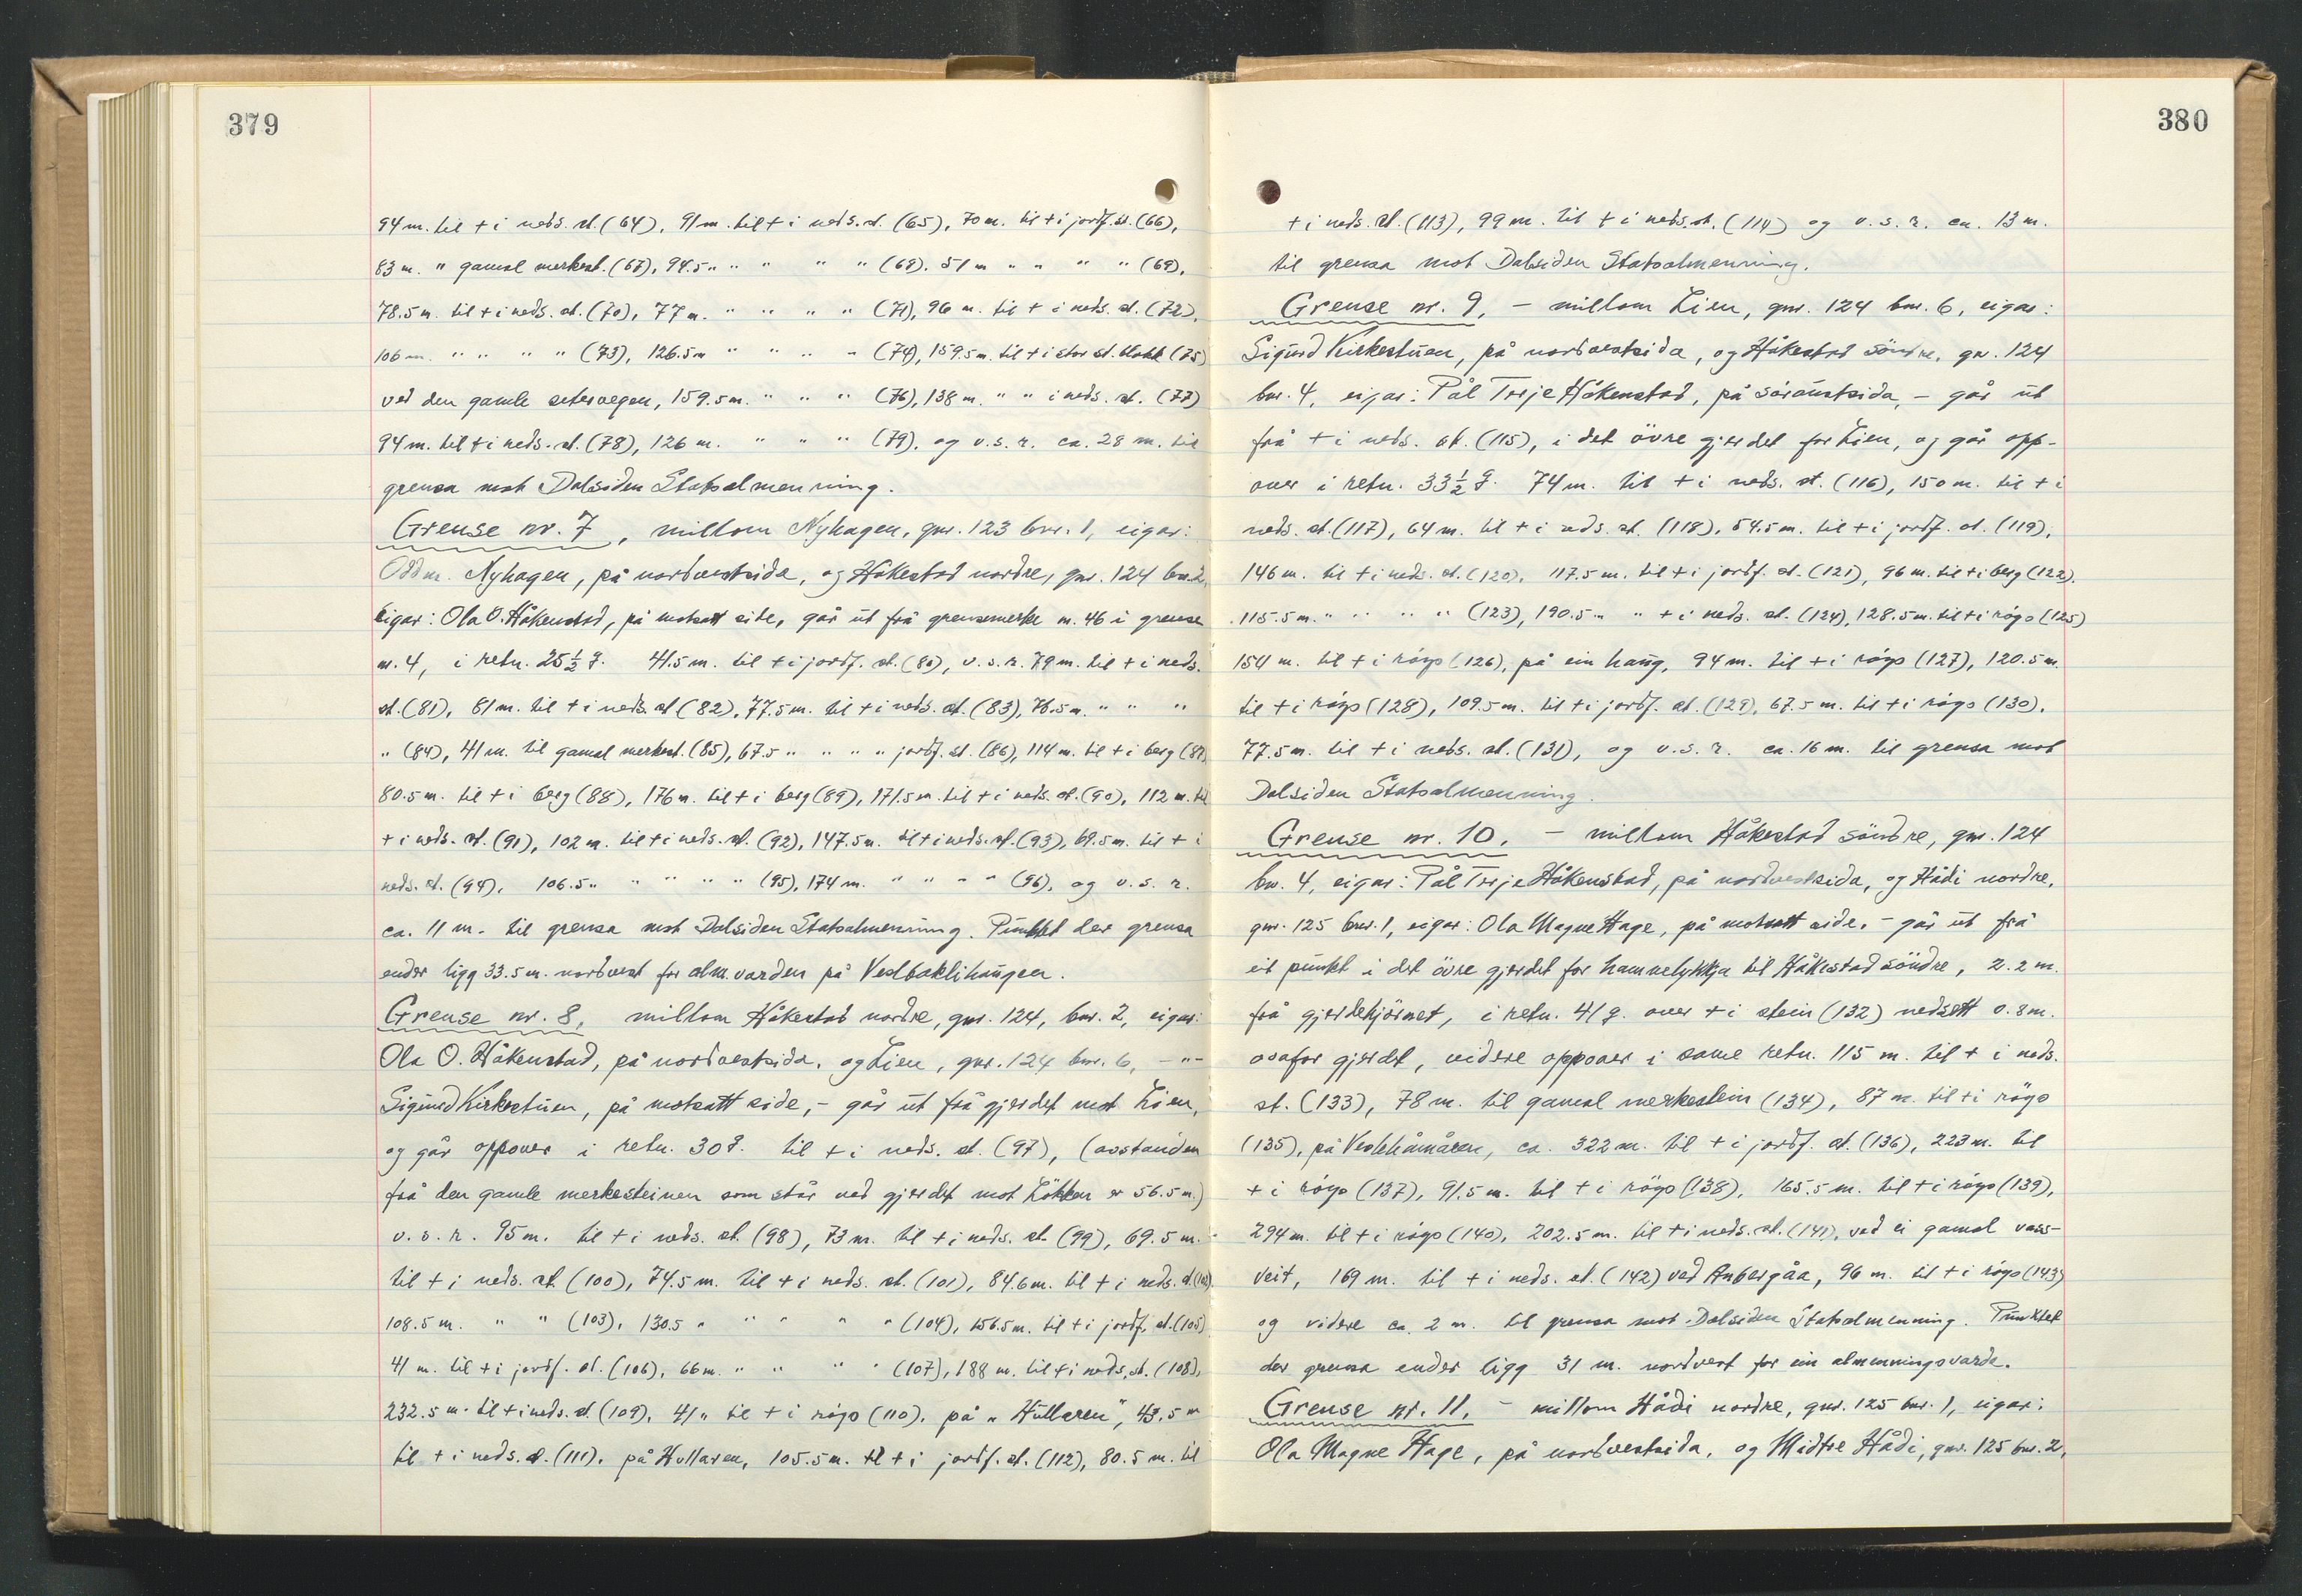 379
94 m. til + i neds. st. (64), 91 m. til + i neds. st. (65), 70 m. til + i jordf. st. (66),
83 m. " gamal merkest. (67), 94.5 " " " " " (68). 51 m " " " " (69),
78.5 m. til + i neds. st. (70), 77 m. " " " " (71), 96 m. til + i neds. st. (72),
106 m. " " " " (73), 126.5 m " " " " (74), 159.5 m. til + i stor st. blokk (75)
ved den gamle setervegen, 159.5 m. " " " (76), 138 m. " " i neds. st. (77)
94 m. til + i neds. st. (78), 126 m. " " " (79), og v.s.r. ca. 28 m. til
grensa mot Dalsiden Statsalmenning.
Grense nr. 7, millom Nyhagen, gnr. 123 bnr. 1, eigar:
Oddm. Nyhagen, på nordvestsida, og Håkestad nordre, gnr. 124 bnr. 2,
eigar: Ola O. Håkenstad, på motsatt side, går ut frå grensemerke nr. 46 i grense
nr. 4, i retn. 25 1/2 g. 41.5 m. til + i jordf. st. (80), v.s.r. 79 m. til + i neds.
st. (81), 81 m. til + i neds. st (82), 77.5 m. til + i neds. st. (83), 76.5 m. " " "
" (84), 41 m. til gamal merkest. (85), 67.5 " " " " jordf. st. (86), 114 m. til + i berg (87)
80.5 m. til + i berg (88), 176 m. til + i berg (89), 171.5 m. til + i neds. st. (90), 112 m. til
+ i neds. st. (91), 102 m. til + i neds. st. (92), 147.5 m. til + i neds. st. (93), 69.5 m. til + i
neds. st. (94), 106.5 " " " " " (95), 174 m. " " " " (96), og v.s.r.
ca. 11 m. til grensa mot Dalsiden Statsalmenning. Punktet der grensa
ender ligg 33.5 m. nordvest for alm.varden på Veslbaklihaugen.
Grense nr. 8, millom Håkestad nordre, gnr. 124, bnr. 2, eigar:
Ola O. Håkenstad, på nordvestsida, og Lien, gnr. 124 bnr. 6, - " -
Sigurd Kirkestuen, på motsatt side, - går ut frå gjerdet mot Lien,
og går oppover i retn. 30 g. til + i neds. st. (97), (avstanden
frå den gamle merkesteinen som står ved gjerdet mot Løkken er 56.5 m.)
v.s.r. 95 m. til + i neds. st. (98), 73 m. til + i neds. st. (99), 69.5 m.
til + i neds. st. (100), 74.5 m. til + i neds. st. (101), 84.6 m. til + i neds. st. (102)
108.5 m. " " (103), 130.5 " " " " " (104), 156.5 m. til + i jordf. st. (105)
41 m. til + i jordf. st. (106), 66 m. " " " " (107), 188 m. til + i neds. st. (108),
232.5 m. til + i neds. st. (109), 41 " til + i røys (110), på "Hullaren", 43.5 m
til + i neds. st. (111), på Hullaren, 105.5 m. til + i jordf. st. (112), 80.5 m. til
380
+ i neds. st. (113), 99 m. til + i neds. st. (114) og v.s.r. ca. 13 m.
til grensa mot Dalsiden Statsalmenning.
Grense nr. 9, - millom Lien, gnr. 124 bnr. 6, eigar:
Sigurd Kirkestuen, på nordvestsida, og Håkestad söndre, gnr. 124
bnr. 4, eigar: Pål Terje Håkenstad, på söraustsida, - går ut
frå + i neds. st. (115), i det övre gjerdet for Lien, og går opp-
over i retn. 33 1/2 g. 74 m. til + i neds. st. (116), 150 m. til + i
neds. st. (117), 64 m. til + i neds. st. (118), 54.5 m. til + i jordf. st. (119),
146 m. til + i neds. st. (120), 117.5 m. til + i jordf. st. (121), 96 m. til + i berg (122).
115.5 m. " " " " (123), 190.5 " " + i neds. st. (124), 128.5 m. til + i röys (125)
154 m. til + i röys (126), på ein haug, 94 m. til + i röys (127), 120.5 m.
til + i röys (128), 109.5 m. til + i jordf. st. (129), 67.5 m. til + i röys (130),
77.5 m. til + i neds. st. (131), og v.s.r. ca. 16 m. til grensa mot
Dalsiden Statsalmenning.
Grense nr. 10, - millom Håkestad söndre, gnr. 124
bnr. 4, eigar: Pål Terje Håkenstad, på nordvestsida, og Hådi nordre,
gnr. 125 bnr. 1, eigar: Ola Magne Hage, på motsatt side, - går ut frå
eit punkt i det övre gjerdet for hamnelykkja til Håkestad söndre, 2.2 m.
frå gjerdehjörnet, i retn. 41 g. over + i stein (132) nedsett 0.8 m.
ovafor gjerdet, vidare oppover i same retn. 115 m. til + i neds.
st. (133), 78 m. til gamal merkestein (134), 87 m. til + i röys
(135), på Veslehåmåren, ca. 322 m. til + i jordf. st. (136), 223 m. til
+ i röys (137), 91.5 m. til + i röys (138), 165.5 m. til + i röys (139),
294 m. til + i röys (140), 202.5 m. til + i neds. st. (141), ved ei gamal vass-
veit, 169 m. til + i neds. st. (142) ved Anbergåa, 96 m. til + i röys (143)
og videre ca. 2 m. til grensa mot Dalsiden Statsalmenning. Punktet
der grensa ender ligg 31 m. nordvest for ein almenningsvarde.
Grense nr. 11, - millom Hådi nordre, gnr. 125 bnr. 1, eigar:
Ola Magne Hage, på nordvestsida, og Midtre Hådi, gnr. 125 bnr. 2,